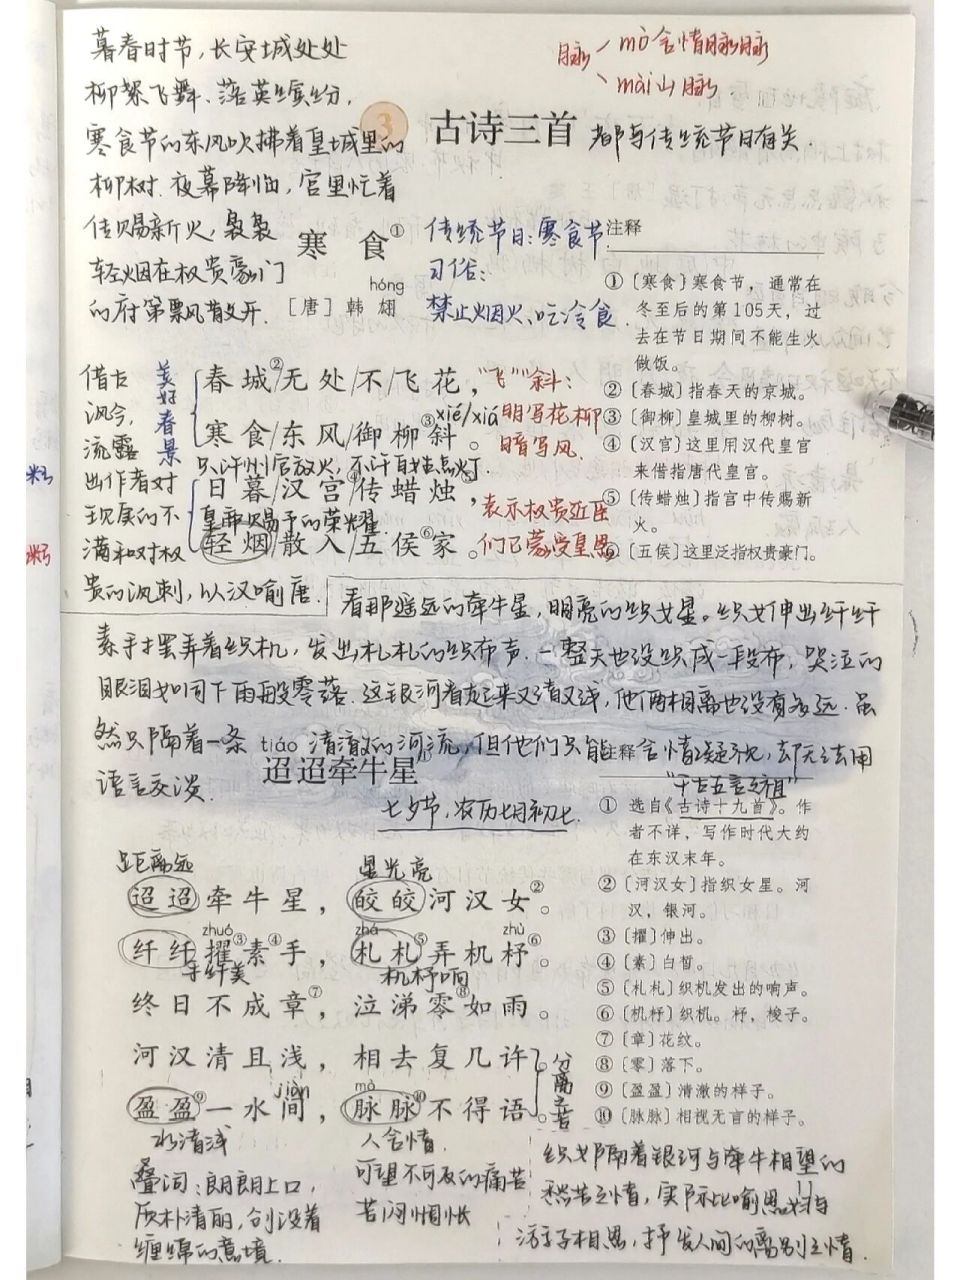 暮春时节,长安城处处
柳絮飞舞、落英缤纷,
寒食节的东风吹拂着皇城里的
柳树.夜幕降临,宫里忙着
传赐新火,袅袅
轻烟在权贵豪门
的府第飘散开.
脉 mò 含情脉脉
mài 山脉
3 古诗三首 都与传统节日有关.
寒食①
hóng
[唐] 韩翃
传统节日:寒食节.
习俗:
禁止烟火、吃冷食.
注释
①〔寒食〕寒食节,通常在
冬至后的第105天,过
去在节日期间不能生火
做饭。
②〔春城〕指春天的京城。
③〔御柳〕皇城里的柳树。
④〔汉宫〕这里用汉代皇宫
来借指唐代皇宫。
⑤〔传蜡烛〕指宫中传赐新
火。
⑥〔五侯〕这里泛指权贵豪门。
借古
讽今,
流露
出作者对
现实的不
满和对权
贵的讽刺,以汉喻唐.
美好春景
春城②/无处/不/飞花,
xié/xiá
寒食/东风/御柳③斜。
只许州官放火,不许百姓点灯.
日暮/汉宫④/传蜡烛⑤,
皇帝赐予的荣耀
轻烟/散入/五侯⑥家。
“飞”“斜”:
明写花柳
暗写风.
表示权贵近臣
们已蒙受皇恩
看那遥远的牵牛星,明亮的织女星。织女伸出纤纤
素手摆弄着织机,发出札札的织布声.一整天也没织成一段布,哭泣的
眼泪如同下雨般零落.这银河看起来又清又浅,他俩相离也没有多远.虽
然只隔着一条清澈的河流,但他们只能含情凝视,却无法用
语言交谈.
tiáo
迢迢牵牛星①
七夕节,农历七月初七.
注释
“千古五言之祖”
① 选自《古诗十九首》。作
者不详,写作时代大约
在东汉末年。
②〔河汉女〕指织女星。河
汉,银河。
③〔擢〕伸出。
④〔素〕白皙。
⑤〔札札〕织机发出的响声。
⑥〔机杼〕织机。杼,梭子。
⑦〔章〕花纹。
⑧〔零〕落下。
⑨〔盈盈〕清澈的样子。
⑩〔脉脉〕相视无言的样子。
距离远 星光亮
迢迢牵牛星,皎皎河汉女②。
zhuó zhá zhù
纤纤擢③素④手,札札⑤弄机杼⑥。
手纤美 机杼响
终日不成章⑦,泣涕零⑧如雨。
河汉清且浅,相去复几许。
jiàn mò
盈盈⑨一水间,脉脉⑩不得语。
分离之苦
水清浅 人含情.
叠词:朗朗上口,
质朴清丽,创设着
缠绵的意境.
可望不可及的痛苦
苦闷惆怅
织女隔着银河与牵牛相望的
愁苦之情,实际比喻思妇与
游子相思,抒发人间的离别之情.